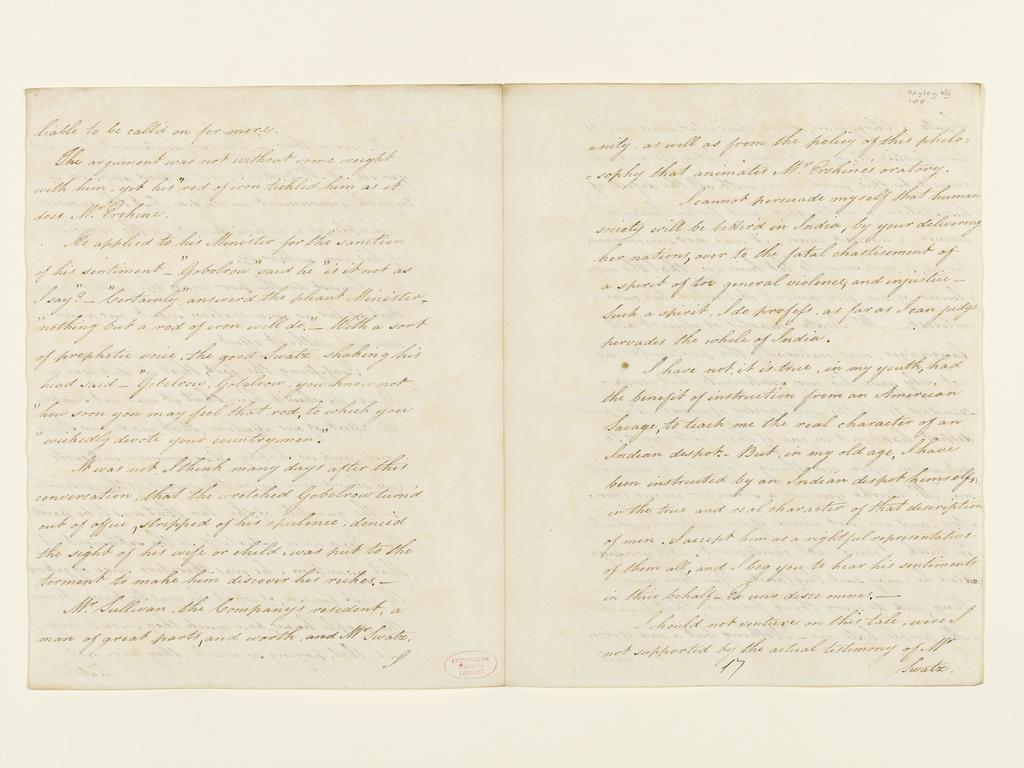 liable to be call'd on for more.
The argument was not without some weight
with him, yet his "rod of iron tickled him as it
does Mr Erskine.
He applied to his Minister for the sanction
of his sentiment – "Gobolrow" said he "is it not as
I say"? – "Certainly" answer'd the pliant Minister –
"nothing but a rod of iron will do." – With a sort
of prophetic voice, the good Swatz shaking his
head said – "Gobolrow, Gobolrow, you know not
"how soon you may feel that rod, to which you
"wickedly devote your countrymen."
It was not I think many days after this
conversation, that the wretched Gobolrow turn'd
out of office, stripped of his opulence, denied
the sight of his wife or child, was put to the
torment to make him discover his riches. –
Mr Sullivan, the Company's resident, a
man of great parts, and worth, and Mr Swatz,
Hayley VIII
108
=nity, as well as from the policy of this philo=
=sophy that animates Mr Erskine's oratory.
I cannot persuade myself that human
society will be better'd in India, by your delivering
her nations, over to the fatal chastisement of
a spirit of too general violence, and injustice –
Such a spirit, I do profess, as far as I can judge
pervades the whole of India.
I have not, it is true, in my youth, had
the benefit of instruction from an American
Savage, to teach me the real character of an
Indian despot. But, in my old age, I have
been instructed by an Indian despot himself,
in the true and real character of that description
of men. I accept him as a rightful representative
of them all, and I beg you to hear his sentiments
in their behalf – Ex uno disce omnes. –
I should not venture on this tale, were I
not supported by the actual testimony of Mr
17
Swatz.
FITZWILLIAM
MUSEUM
LIBRARY